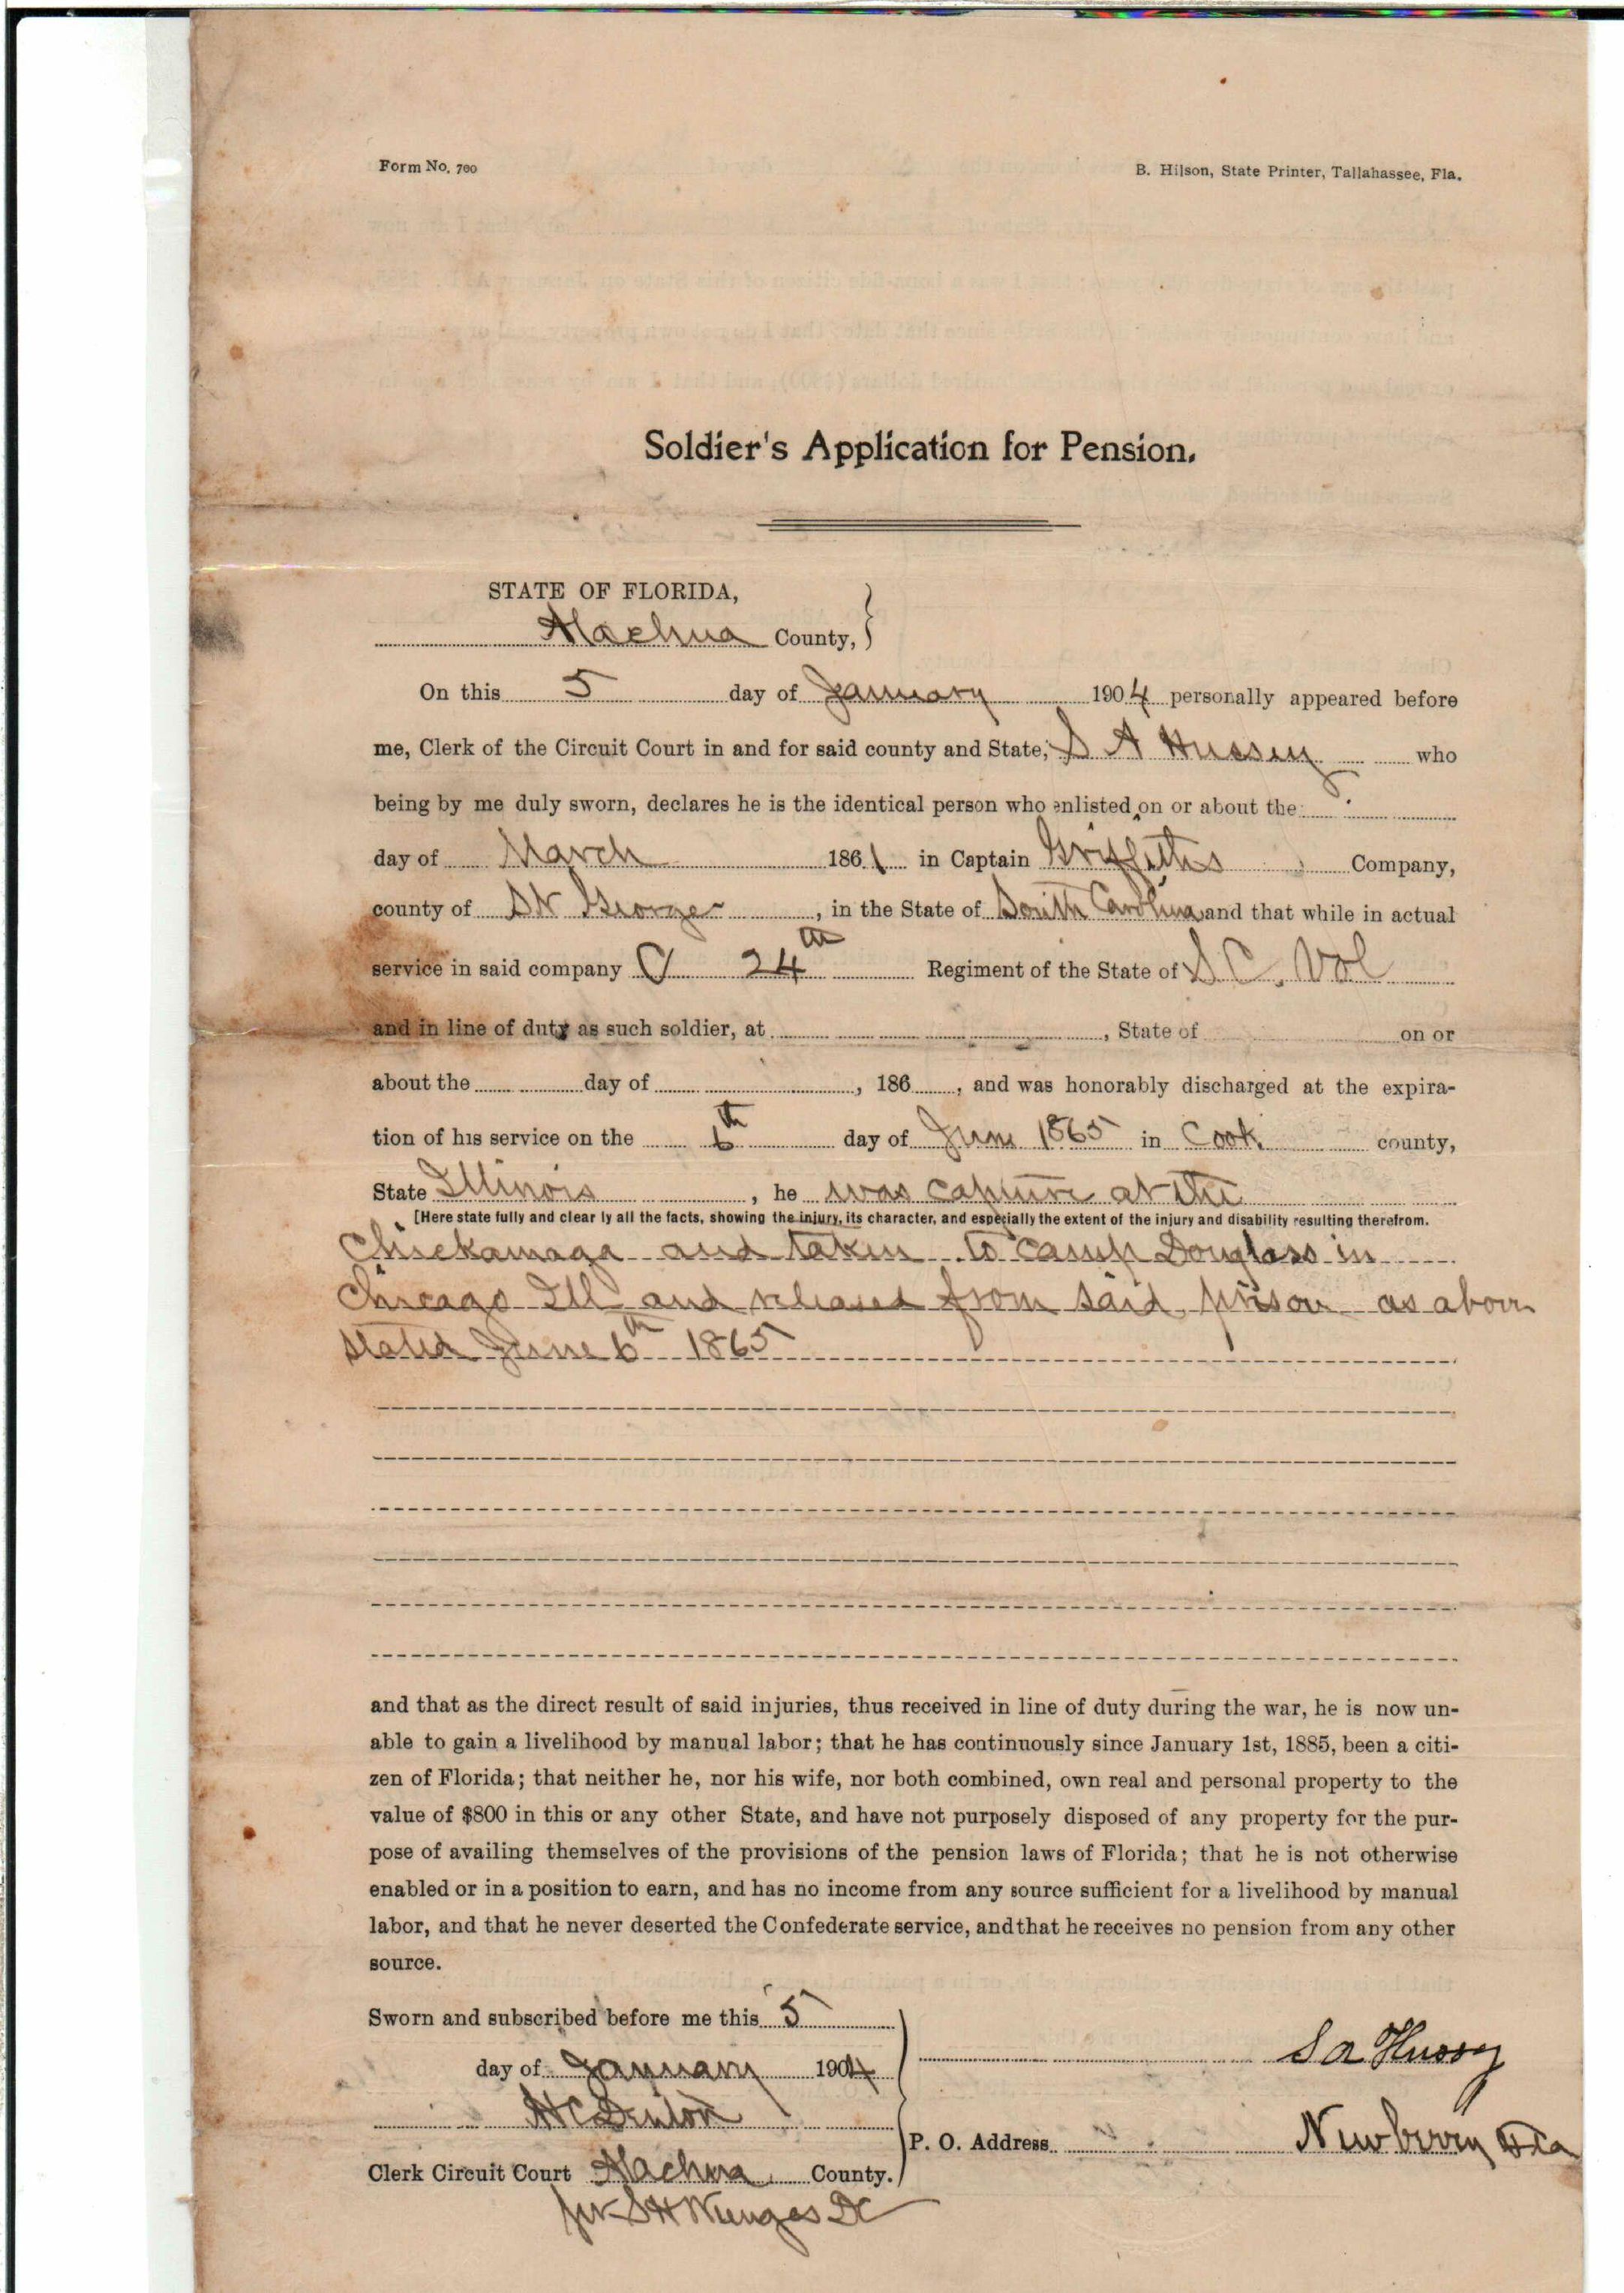 Form No. 700
B. Hilson, State Printer, Tallahassee, Fla.
Soldier's Application for Pension.
STATE OF FLORIDA,
Alachua County, }
On this 5 day of January 1904 personally appeared before
me, Clerk of the Circuit Court in and for said county and State, S A Hussey who
being by me duly sworn, declares he is the identical person who enlisted on or about the
day of March 1861 in Captain Griffiths Company,
county of St George, in the State of South Carolina and that while in actual
service in said company C 24th Regiment of the State of S C. Vol
and in line of duty as such soldier, at , State of on or
about the day of , 186 , and was honorably discharged at the expira-
tion of his service on the 6th day of June 1865 in Cook county,
State Illinois , he was capture at the
[Here state fully and clear ly all the facts, showing the injury, its character, and especially the extent of the injury and disability resulting therefrom.
Chickamaga and taken to Camp Douglass in
Chicago Ill and released from said prison as above
stated June 6th 1865
and that as the direct result of said injuries, thus received in line of duty during the war, he is now un-
able to gain a livelihood by manual labor; that he has continuously since January 1st, 1885, been a citi-
zen of Florida; that neither he, nor his wife, nor both combined, own real and personal property to the
value of $800 in this or any other State, and have not purposely disposed of any property for the pur-
pose of availing themselves of the provisions of the pension laws of Florida; that he is not otherwise
enabled or in a position to earn, and has no income from any source sufficient for a livelihood by manual
labor, and that he never deserted the Confederate service, and that he receives no pension from any other
source.
Sworn and subscribed before me this 5
day of January 1904
S A Hussy
H C Denton
P. O. Address Newberry Fla
Clerk Circuit Court Alachua County.
per S H Wienges DC